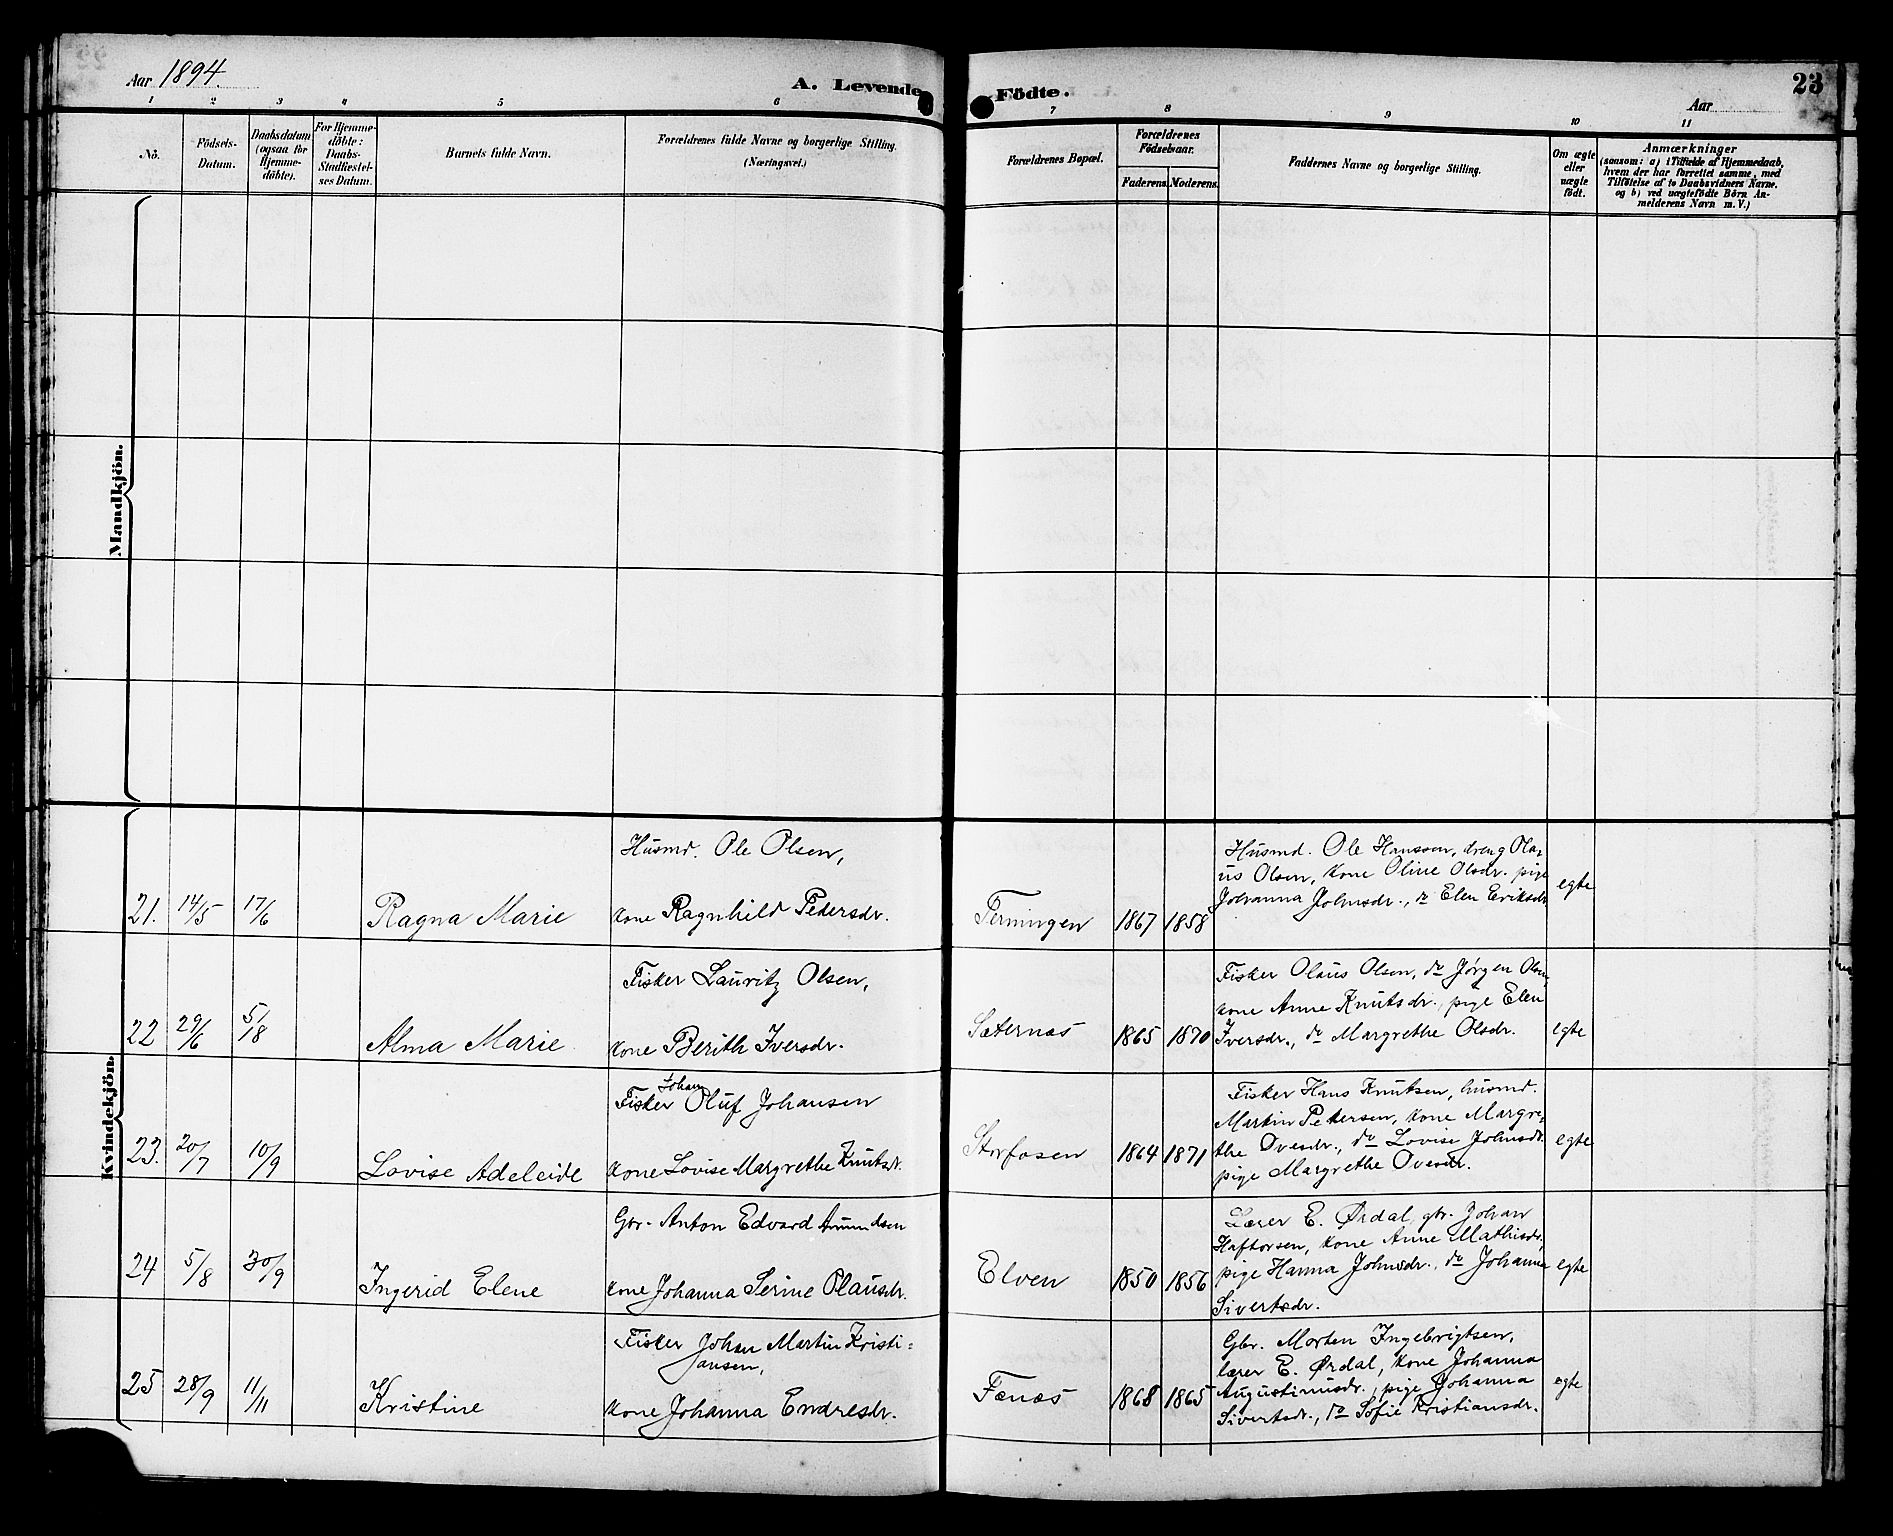 Aar 1894.
A. Levende Födte.
23
Aar
1 2 3 4 5 6 7 8 9 10 11
No.
Födsels-
Datum.
Daabsdatum
(ogsaa for
Hjemme-
döbte).
For Hjemme-
döbte:
Daabs-
Stadfæstel-
ses Datum.
Barnets fulde Navn.
Forældrenes fulde Navne og borgerlige Stilling.
(Næringsvei.)
Forældrenes Bopæl.
Forældrenes
Födselsaar.
Faderens. Moderens.
Faddernes Navne og borgerlige Stilling.
Om ægte
eller
uægte
födt.
Anmærkninger
(saasom: a) i Tilfælde af Hjemmedaab,
hvem der har forrettet samme, med
Tilföielse af to Daabsvidners Navne.
og b) ved uægtefödte Börn An-
melderens Navn m. V.)
Mandkjön.
Kvindekjön.
21. 14/5 17/6 Ragna Marie
Husmd. Ole Olsen,
kone Ragnhild Pedersdr.
Terningen 1867 1858
Husmd. Ole Hanssen, dreng Ola-
us Olsen, kone Oline Olsdr. pige
Johanna Johnsdr., do Elen Eriksdr
egte
22 29/6 5/18 Alma Marie
Fisker Lauritz Olsen,
kone Berith Iversdr.
Sæternæs 1865 1870
Fisker Olaus Olsen, do Jørgen Olsen,
kone Anne Knutsdr., pige Elen
Iversdr., do Margrethe Olsdr.
egte
23. 20/7 10/9 Lovise Adeleide
Johan
Fisker Oluf Johansen
kone Lovise Margrethe Knutsdr.
Storfosen 1864 1871
Fisker Hans Knutsen, husmd.
Martin Petersen, kone Margre-
the Ovesdr., do Lovise Johnsdr.
pige Margrethe Ovesdr.
egte
24 5/8 30/9 Ingerid Elene
Gbr. Anton Edvard Amundsen
kone Johanna Serine Olausdr.
Elven 1850 1856
Lærer E. Ørdal, gbr. Johan
Haftorsen, kone Anne Mathisdr,
pige Hanna Johnsdr., do Johanna
Sivertsdr.
egte
25 28/9 11/11 Kristine
Fisker Johan Martin Kristi-
ansen,
kone Johanna Endresdr.
Fænæs 1868 1865
Gbr. Morten Ingebrigtsen,
lærer E. Ørdal, kone Johanna
Augustinusdr., pige Johanna
Sivertsdr., do Sofie Kristiansdr.
egte